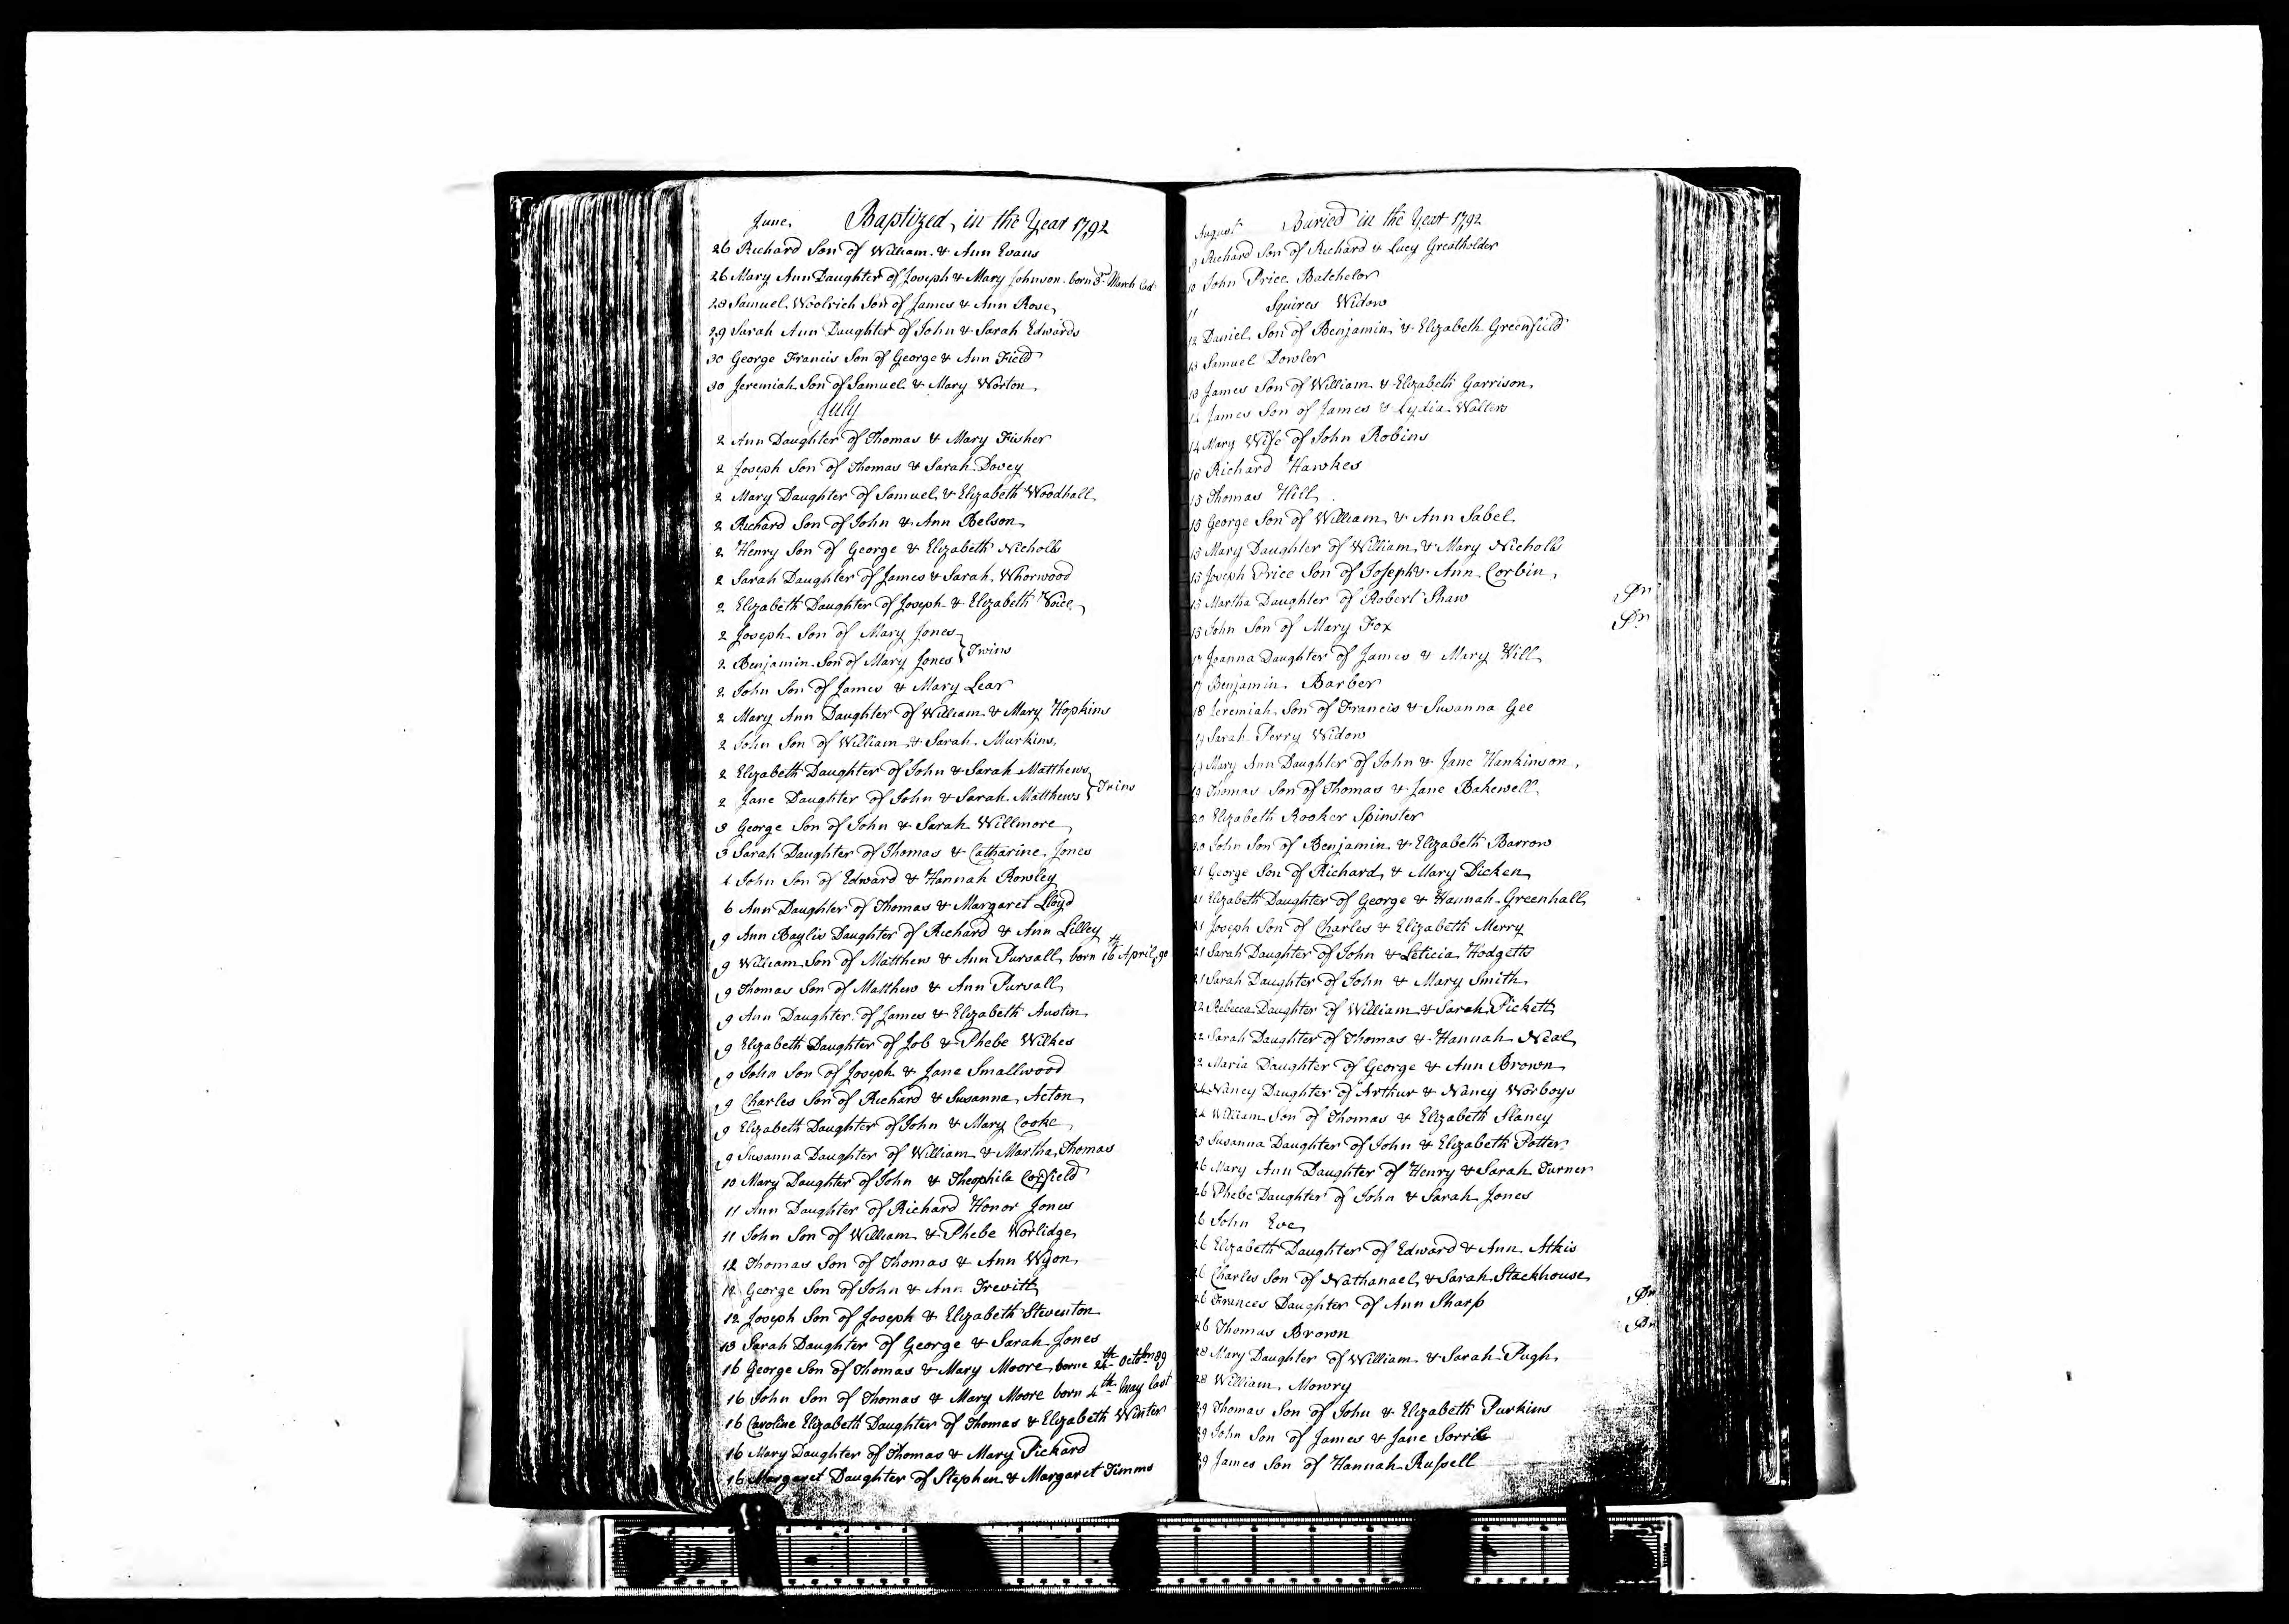 June, Baptized, in the Year 1792
26 Richard Son of William & Ann Evans
26 Mary Ann Daughter of Joseph & Mary Johnson. born 3rd March last
28 Samuel Woolrich Son of James & Ann Rose
29 Sarah Ann Daughter of John & Sarah Edwards
30 George Francis Son of George & Ann Field
30 Jeremiah Son of Samuel & Mary Worton
July
2 Ann Daughter of Thomas & Mary Fisher
2 Joseph Son of Thomas & Sarah Dovey
2 Mary Daughter of Samuel & Elizabeth Woodhall
2 Richard Son of John & Ann Belson
2 Henry Son of George & Elizabeth Nicholls
2 Sarah Daughter of James & Sarah Whorwood
2 Elizabeth Daughter of Joseph & Elizabeth Voice
2 Joseph Son of Mary Jones
2 Benjamin Son of Mary Jones } Twins
2 John Son of James & Mary Lear
2 Mary Ann Daughter of William & Mary Hopkins
2 John Son of William & Sarah Murkins
2 Elizabeth Daughter of John & Sarah Matthews
2 Jane Daughter of John & Sarah Matthews } Twins
3 George Son of John & Sarah Willmore
3 Sarah Daughter of Thomas & Catharine Jones
4 John Son of Edward & Hannah Rowley
6 Ann Daughter of Thomas & Margaret Lloyd
9 Ann Baylis Daughter of Richard & Ann Lilley
9 William Son of Matthew & Ann Pursall, born 16th April, 90
9 Thomas Son of Matthew & Ann Pursall
9 Ann Daughter of James & Elizabeth Austin
9 Elizabeth Daughter of Job & Phebe Wilkes
9 John Son of Joseph & Jane Smallwood
9 Charles Son of Richard & Susanna Acton
9 Elizabeth Daughter of John & Mary Cooke
9 Susanna Daughter of William & Martha Thomas
10 Mary Daughter of John & Theophila Corfield
11 Ann Daughter of Richard Honor Jones
11 John Son of William & Phebe Worlidge
12 Thomas Son of Thomas & Ann Wyon
12 George Son of John & Ann Trevitt
12 Joseph Son of Joseph & Elizabeth Steventon
13 Sarah Daughter of George & Sarah Jones
16 George Son of Thomas & Mary Moore, borne 24th Octobr 89
16 John Son of Thomas & Mary Moore born 4th May last
16 Caroline Elizabeth Daughter of Thomas & Elizabeth Winter
16 Mary Daughter of Thomas & Mary Pickard
16 Margaret Daughter of Stephen & Margaret Timms
August Buried in the Year 1792
9 Richard Son of Richard & Lucy Greatholder
10 John Price Batchelor
11 Squires Widow
12 Daniel Son of Benjamin & Elizabeth Greenfield
13 Samuel Dowler
13 James Son of William & Elizabeth Garrison
14 James Son of James & Lydia Walters
14 Mary Wife of John Robins
Richard Hawkes
15 Thomas Hill
15 George Son of William & Ann Sabel
15 Mary Daughter of William & Mary Nicholls
15 Joseph Price Son of Joseph & Ann Corbin
15 Martha Daughter of Robert Shaw Pr
15 John Son of Mary Fox Pr
17 Joanna Daughter of James & Mary Hill
17 Benjamin Barber
18 Jeremiah Son of Francis & Susanna Gee
19 Sarah Perry Widow
19 Mary Ann Daughter of John & Jane Hankinson
19 Thomas Son of Thomas & Jane Bakewell
20 Elizabeth Rooker Spinster
20 John Son of Benjamin & Elizabeth Barrow
21 George Son of Richard & Mary Dicken
21 Elizabeth Daughter of George & Hannah Greenhall
21 Joseph Son of Charles & Elizabeth Merry
21 Sarah Daughter of John & Leticia Hodgetts
21 Sarah Daughter of John & Mary Smith
22 Rebecca Daughter of William & Sarah Pickett
22 Sarah Daughter of Thomas & Hannah Neal
22 Maria Daughter of George & Ann Brown
24 Nancy Daughter of Arthur & Nancy Worboys
24 William Son of Thomas & Elizabeth Slaney
25 Susanna Daughter of John & Elizabeth Potter
26 Mary Ann Daughter of Henry & Sarah Turner
26 Phebe Daughter of John & Sarah Jones
26 John Eve
26 Elizabeth Daughter of Edward & Ann Atkis
26 Charles Son of Nathanael & Sarah Stackhouse
26 Frances Daughter of Ann Sharp Pr
26 Thomas Brown Pr
28 Mary Daughter of William & Sarah Pugh
28 William Mowry
29 Thomas Son of John & Elizabeth Purkins
29 John Son of James & Jane Sorrill
29 James Son of Hannah Russell